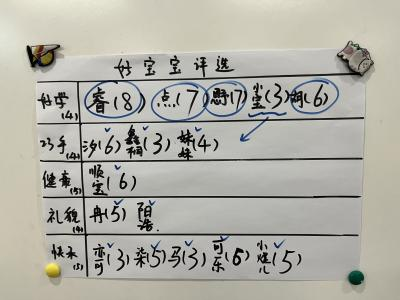 好宝宝评选
好学(4) 睿(8 点(7) 懸(7 宝(3) 胡(6)
巧手(4) 汐(6) 鑫桐(3) 妹妹(4)
健康(5) 顺宝(6)
礼貌(4) 冉(5) 阳浩
快乐(5) 亦可(3) 柒(5) 马(3) 可乐(6) 小煜儿(5)